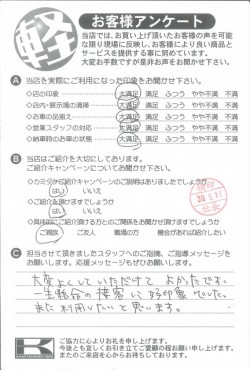 軽
お客様アンケート
当店では、お買い上げ頂いたお客様の声を可能
な限り現場に反映し、お客様により良い商品と
サービスを提供する事に努めています。
大変お手数ですが是非お声をお聞かせ下さい。
A 当店を実際にご利用になった印象をお聞かせ下さい。
◇店の印象 大満足 満足 ふつう やや不満 不満
◇店内・展示場の清掃 大満足 満足 ふつう やや不満 不満
◇お車の品揃え 大満足 満足 ふつう やや不満 不満
◇営業スタッフの対応 大満足 満足 ふつう やや不満 不満
◇納車時のお車の状態 大満足 満足 ふつう やや不満 不満
B 当店はご紹介を大切にしております。
ご紹介キャンペーンについてお聞かせ下さい。
◇カミタケ紹介キャンペーンのご説明はありましたでしょうか
はい いいえ
◇ご紹介を頂けますでしょうか
はい いいえ
◇具体的にご紹介頂ける方とのご関係をお聞かせ頂けますでしょうか
ご親族 ご友人 職場の方 機会があれば紹介したい
C 担当させて頂きましたスタッフへのご指摘、ご指導メッセージを
お願いします。応援メッセージもぜひお願いします。
大変よくしていただけて よかったです。
一生懸命の接客に好印象でした。
また利用したいと思います。
K
ご協力に心よりお礼を申し上げます。
今後とも宜しくお引き立てご愛顧の程お願い申し上げます。
またのご来店を心からお待ちしております。